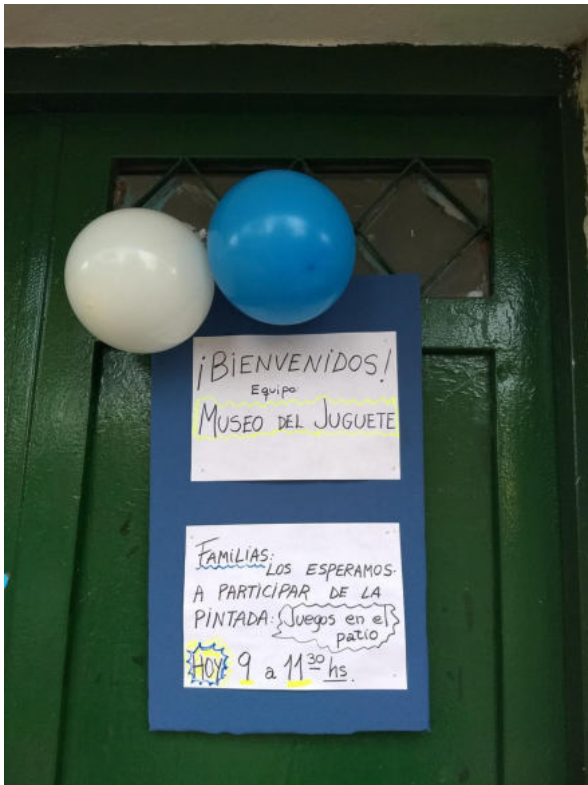 ¡BIENVENIDOS!
Equipo:
MUSEO DEL JUGUETE
FAMILIAS:
LOS ESPERAMOS
A PARTICIPAR DE LA
PINTADA: Juegos en el
patio
HOY 9 a 11³⁰ hs.